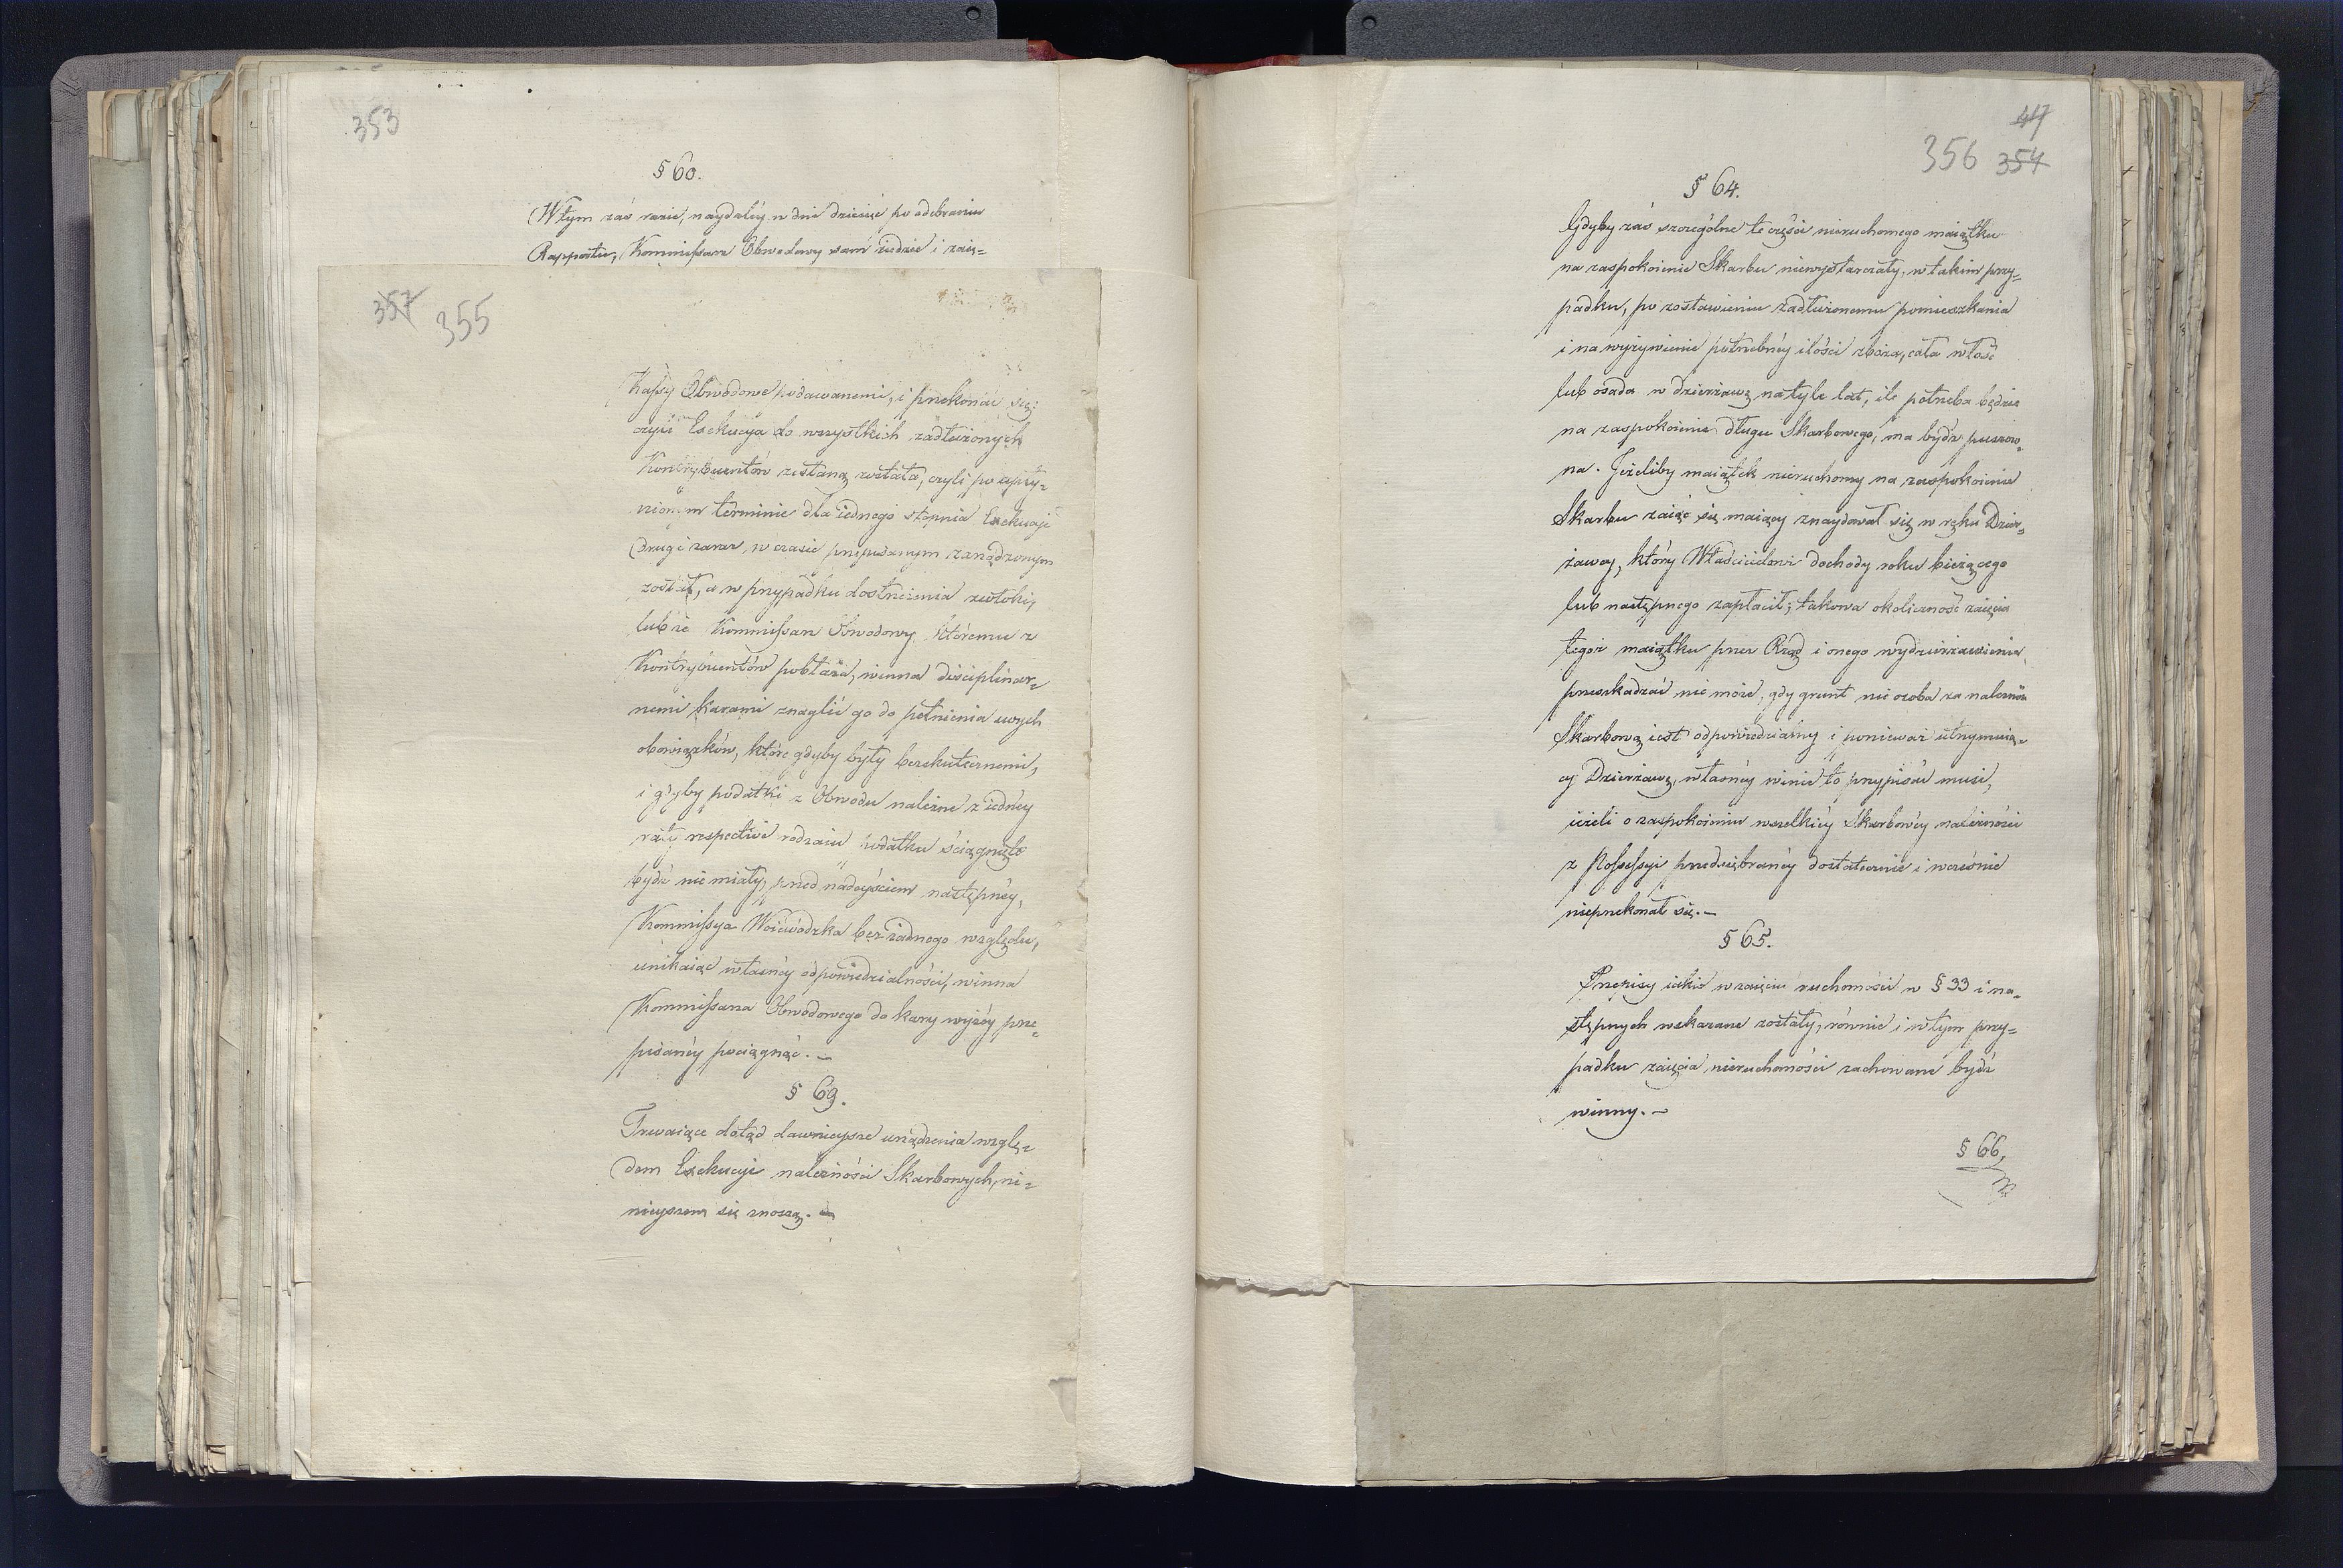 353
§ 60.
W tym zaś razie, naydaléy w dni dziesięć po odebraniu
Rapportu, Kommissarz Obwodowy sam ziedzie i zaię-
357 355
Kassy Obwodowe podawanemi, i przekonać się;
czyli Exekucya do wszystkich zadłużonych
Kontrybuentów zesłaną została, czyli po upły-
nionym terminie dla iednego stopnia Exekucyi
drugi zaraz w czasie przepisanym zarządzonym
został, a w przypadku dostrzeżenia zwłoki,
lub że Kommissarz Obwodowy któremu z
Kontrybuentów pobłaża, winna disciplinar-
nemi karami znaglić go do pełnienia swych
obowiązków, które gdyby były bezskutecznemi,
i gdyby podatki z Obwodu należne z iednéy
raty respective rodzaiu podatku ściągnięte
bydź nie miały, przed nadeyściem następnéy,
Kommissya Woiewódzka bez żadnego względu,
unikaiąc własnéy odpowiedzialności, winna
Kommissarza Obwodowego do kary wyżéy prze-
pisanéy pociągnąć. —
§ 69.
Trwaiące dotąd dawnieysze urządzenia wzglę-
dem Exekucyi należności Skarbowych, ni-
nieyszem się znoszą. —
417
356 354
§ 64.
Gdyby zaś szczególne te części nieruchomego maiątku
na zaspokoienie Skarbu niewystarczały, w takim przy-
padku, po zostawieniu zadłużonemu pomieszkania
i na wyżywienie potrzebnéy ilości zboża, cała włość
lub osada w dzierżawę na tyle lat, ile potrzeba będzie
na zaspokoienie długu Skarbowego, ma bydź puszczo-
na. Jeżeliby maiątek nieruchomy na zaspokoienie
Skarbu zaiąć się maiący znaydował się w ręku Dzier-
żawcy, który Właścicielowi dochody roku bieżącego
lub następnego zapłacił; takowa okoliczność zaięcia
tegoż maiątku przez Rząd i onego wydzierżawienia
przeszkadzać nie może, gdy grunt nie osoba za należność
Skarbową iest odpowiedzialny i ponieważ utrzymuią-
cy Dzierżawę, własnéy winie to przypisać musi,
ieżeli o zaspokoieniu wszelkiéy Skarbowéy należności
z Possessyi przedsiębranéy dostatecznie i wcześnie
nieprzekonał się. —
§ 65.
Przepisy iakie w zaięciu ruchomości w § 33 i na-
stępnych wskazane zostały, równie i w tym przy-
padku zaięcia nieruchomości zachowane bydź
winny. —
§ 66,